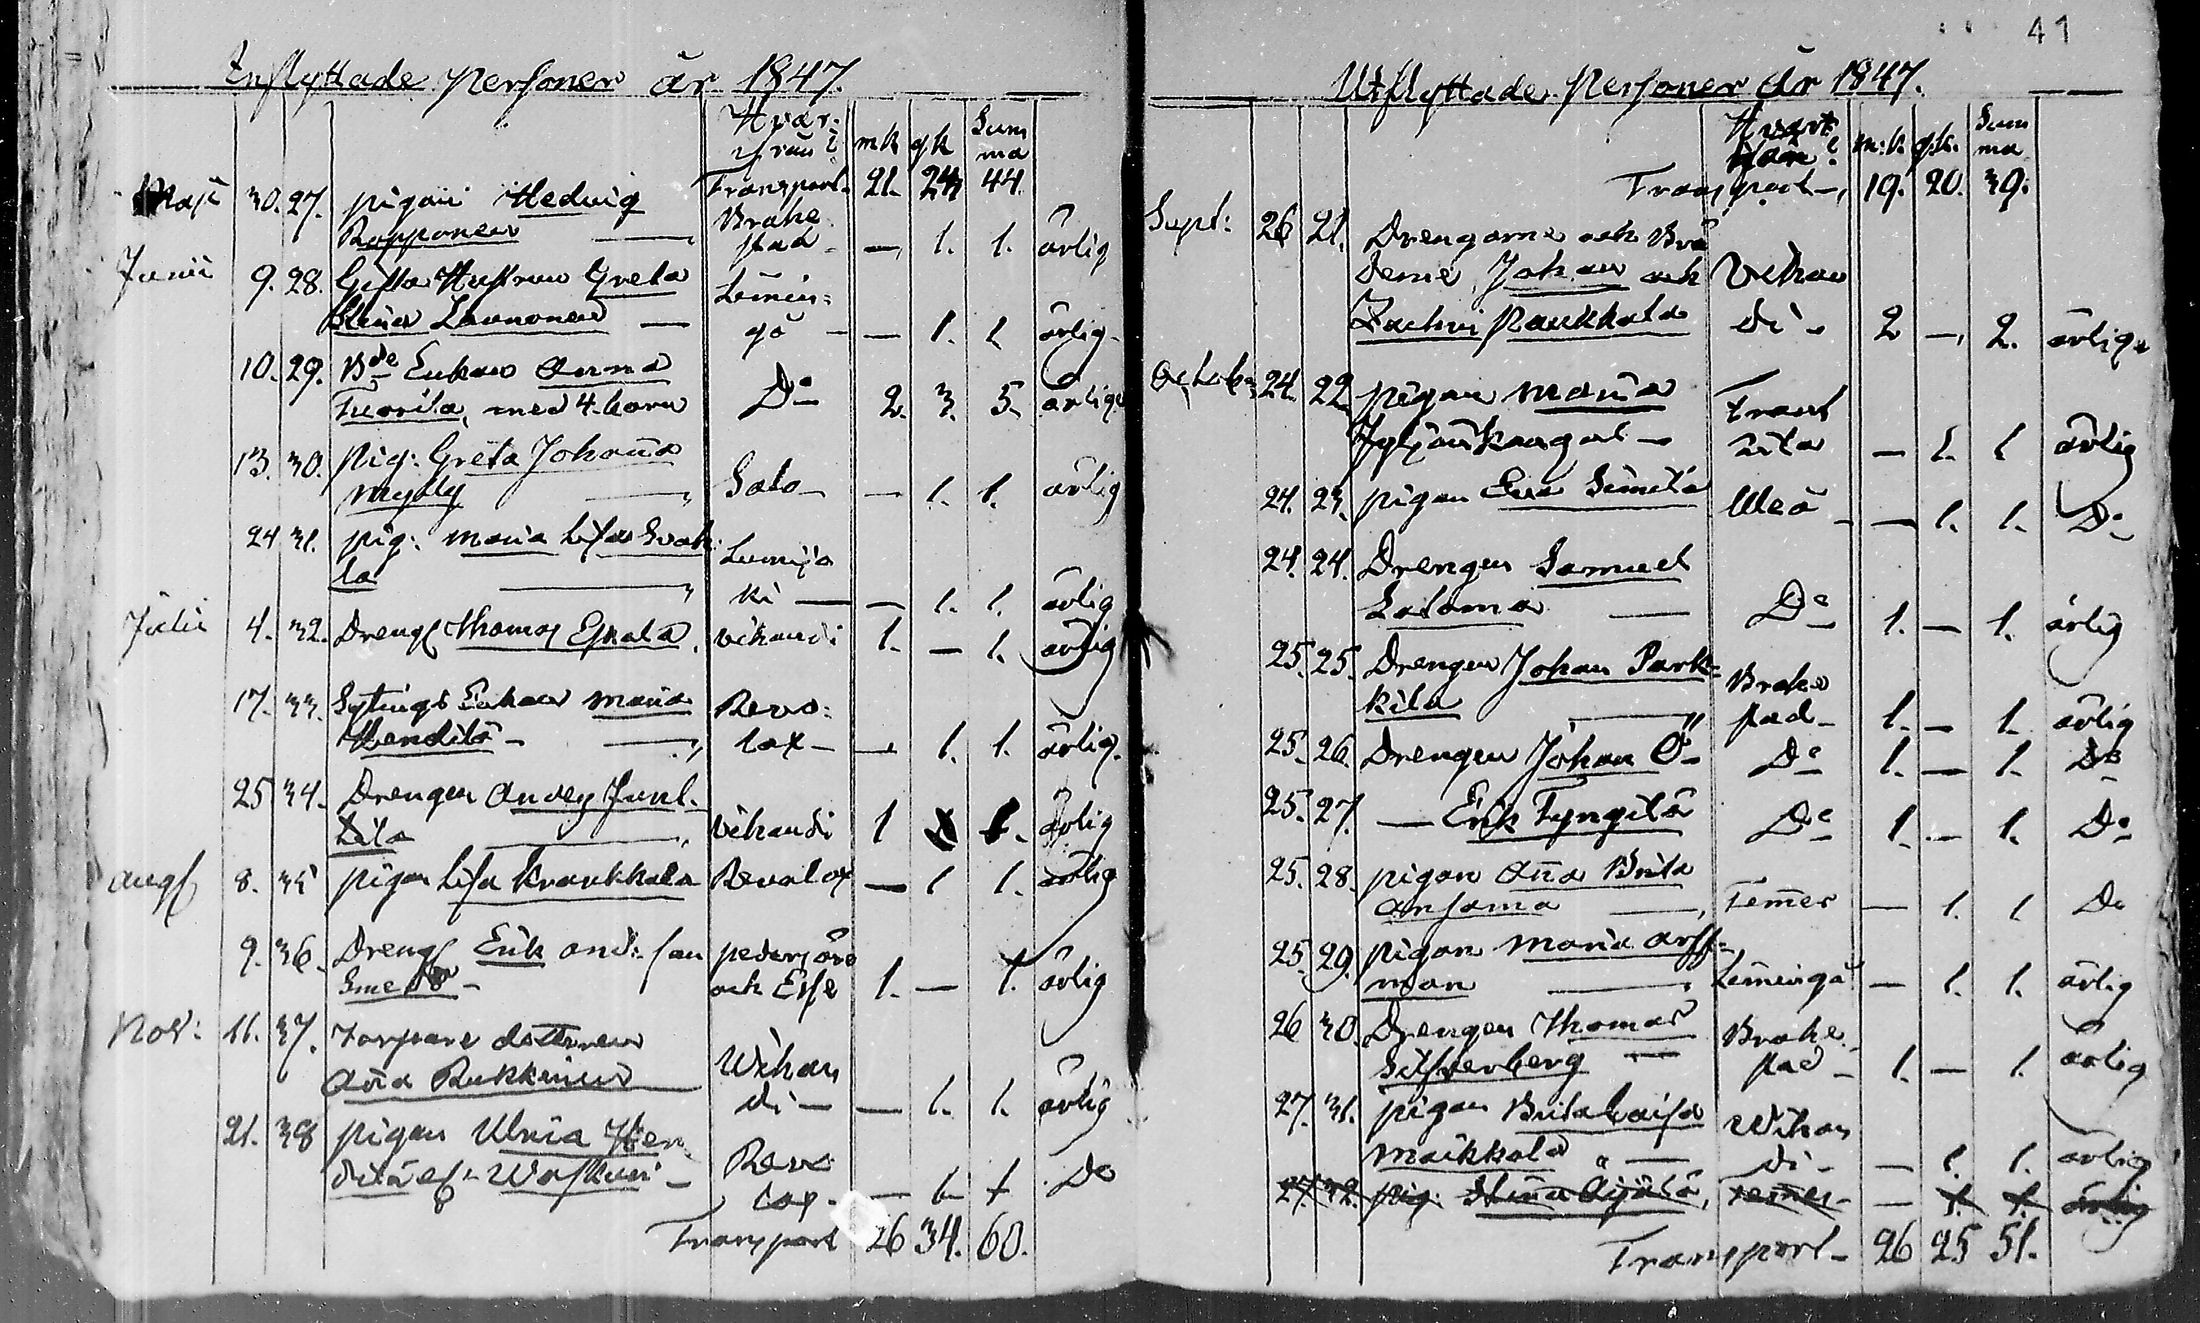 41
Inflyttade Personer år 1847.
Hvar-
ifrån? mk qk Summa
Transport 21. 23 44.
Maji 30. 27. pigan Hedvig Brahe
Rapponen — stad — 1. 1. ärlig
Junii 9. 28. Gifta Hustrun Greta Limin:
Stina Launonen — gå — — 1. 1 ärlig
10. 29. Bde Enkan Anna
Tuorila, med 4. barn Do 2. 3. 5. ärlige
13. 30. Pig: Greta Johaña
Mylly — Salo — — 1. 1. ärlig
24 31. pig: Maria Lisa
la — Lumijo
ki — — 1. 1. ärlig
Julii 4. 32. Drengs Thomas Eskola. Vihandi 1. — 1. ärlig
17. 33. Sytings Enkan Maria Revo:
Hendilä — lax — — 1. 1. ärlig.
25 34. Drengen Anders Junt-
tila — Vihandi 1 1. ärlig
Augs 8. 35 pigan Lisa Kraukkala Revolax — 1 1. ärlig
9. 36. Drengs Erik And: son Pedersöre
Smeds — och Esse 1. — 1. ärlig
Nov: 11. 37. Torpare dottren
Aña Rukkinen Wihan
di — — 1. 1. ärlig
21. 38 pigan Ulrica Hen
dilä el: — Revo
lax — — 1 1 Do
Transport 26 34. 60.
Utflyttade Personer År 1847.
Hvart
m.k. q.k. Summa
Transport —, 19. 20. 39.
Sept: 26 21. Drengarne och Brö
derne, Johan och Vihan
Zachri Paukkala di — 2 —, 2. ärlige
Octob: 24. 22 pigan Maria Frant
zila — 1. 1 ärlig
24. 23. pigan Eva Simelä Uleå — — 1. 1. Do
24. 24. Drengen Samuel
Saloma — Do 1. — 1. ärlig
25. 25. Drengen Johan Park-
kila — Brahe
stad — 1. — 1. ärlig
25. 26. Drengen Johan Ö — Do 1. — 1. Do
25. 27. — Erik Tyngilä Do 1. — 1. Do
25. 28. pigan Aña Brita
Ansama —, Temmes — 1. 1 Do
25. 29. pigan Maria Arff-
man — Limingå — 1. 1. ärlig
26 30. Drengen Thomas Brahe
Silfverberg — stad — 1. — 1. ärlig
27. 31. pigan Brita Caisa Wihan
Maikkala — di — — 1. 1. ärlig
27. 32. pig: Stina Äijälä, Temmes — — 1. 1. ärlig
Transport — 26 25 51.